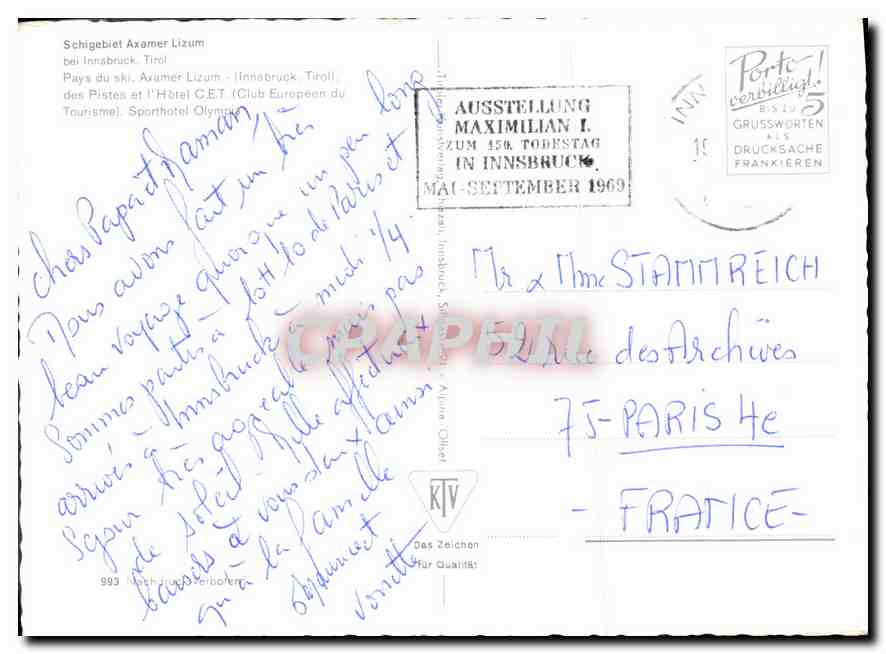 Schigebiet Axamer Lizum
bei Innsbruck, Tirol
Pays du ski, Axamer Lizum - (Innsbruck, Tirol),
des Pistes et l'Hôtel C.E.T. (Club Européen du
Tourisme), Sporthotel Olympia
chers Papa et Maman,
Nous avons fait un très
beau voyage quoique un peu long
Sommes partis à de Paris et
arrivés à Innsbruck à midi 1/4.
Séjour très agréable mais pas
de soleil. Mille affectueux
baisers à vous deux ainsi
qu'à la famille
et
Tiroler Kunstverlag Innsbruck, Alpina Offset
AUSSTELLUNG
MAXIMILIAN I.
ZUM 450. TODESTAG
IN INNSBRUCK
MAI-SEPTEMBER 1969
INN
19
Porto-
verbilligt!
BIS ZU 5
GRUSSWORTEN
ALS
DRUCKSACHE
FRANKIEREN
Mr & Mme STAMMREICH
52 rue des Archives
75-PARIS 4e
- FRANCE -
CPAPHIL
KTV
Das Zeichen
für Qualität
993 Nachdruck verboten